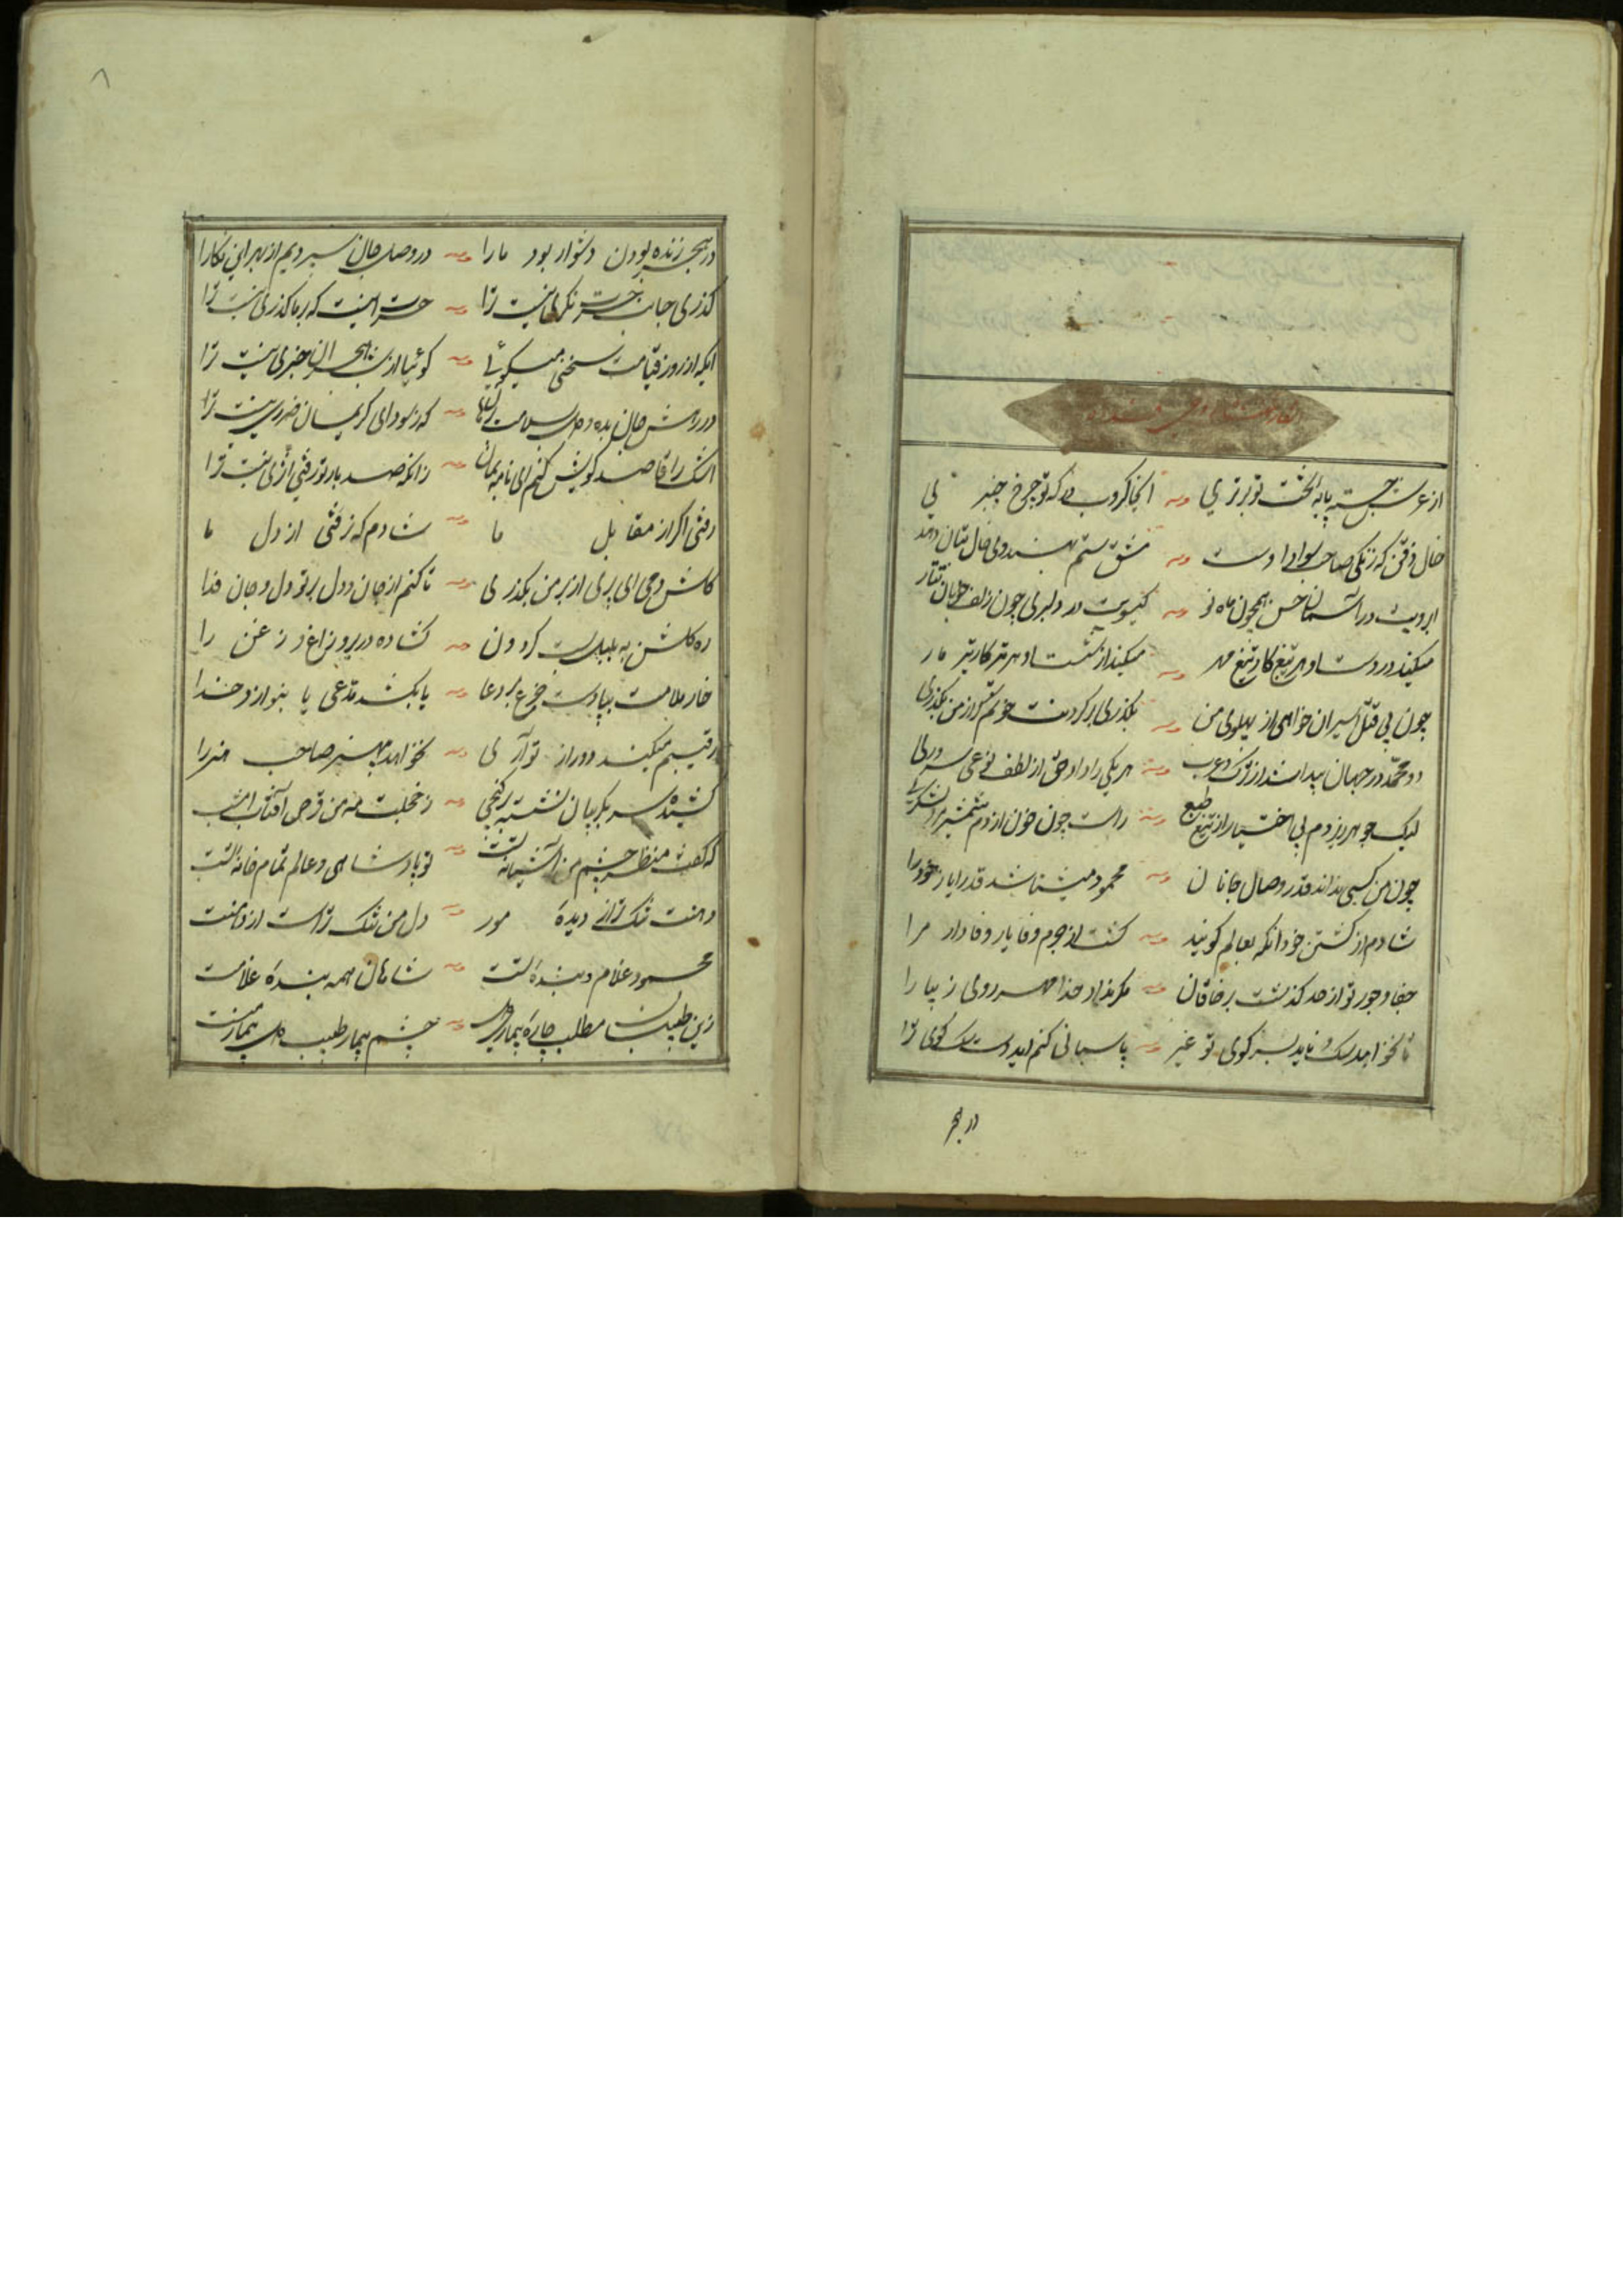 از عرش جسته پایه تخت تو برتری وله آنجا کروب که تو چرخ چنبری
خال ذقن که زنگی صاحب سوادا وست وله مشق ستم بهندوی خال بتان دهد
ابرویت در آسمان حسن همچون ماه نو وله گیسویت در دلبری چون زلف خوبان تتار
میکند در دست او هر تیغ کار تیغ مهر وله میکند از شست او هر تیر کار تیر مار
چون پی قتل اسیران خواهی از پهلوی من بگذری بر گردنت خونم گر از من بگذری
دو محمد در جهان پیدا شد از ترک و عرب وله هر یکی را داد حق از لطف نوعی سروری
لیک جوهر ریزدم بی اختیار از تیغ طبع وله راست چون خون از دم شمشیر
چون من کسی نداند قدر وصال جانان وله محمود میشناسد قدر ایاز خود را
شادم از کشتن خود آنکه بعالم گویند وله کشت از جرم وفا یار وفادار مرا
جفا و جور تو از حد گذشت بر خاقان وله مگر نداد خدا مهر روی زیبا را
تا نخواهد سگ و ناید بسر کوی تو غیر وله پاسبانی کنم ایدوست سگ کوی ترا
در هجر
۸
در هجر زنده بودن دشوار بود ما را وله در وصل جان سپردیم از بهر این نگارا
گذری جانب حسرت نگری نیست ترا وله حسرت اینست که بر ما گذری نیست ترا
ایکه از روز قیامت سخنی میگوئی وله گوئیا از شب هجران خبری نیست ترا
در رهش جان بده و وله که ز سودای کریمان ضرری نیست ترا
اشک را قاصد کویش کنم ای ناله بمان وله زانکه صد بار تو رفتی اثری نیست ترا
رفتی اگر از مقابل ما وله شادم که نرفتی از دل ما
کاش دمی ای پری از بر من بگذری وله تا کنم از جان و دل بر تو دل و جان فدا
ره گلشن به بلبل بست گردون وله گشاده در بر و زاغ و زغن را
خار ملامت بپا دست بر دعا وله یا بکشد مدعی یا بنوازد خدا
رقیبم میکند دور از تو آری وله نخواهد بی هنر صاحب هنر را
کشیده سر بگریبان نشسته در کنجی وله ز خجلت مه من قرص آفتاب امشب
که گفت منظر چشم من آشیانه تست وله تو پادشاهی و عالم تمام خانه تست
دهنت تنگ تر از دیده مور وله دل من تنگ تر است از دهنت
محمود غلام و بنده تست وله شاهان همه بنده غلامت
زین طبیبان مطلب چاره بیماری دل وله چشم بیمار طبیب دل بیمار منست